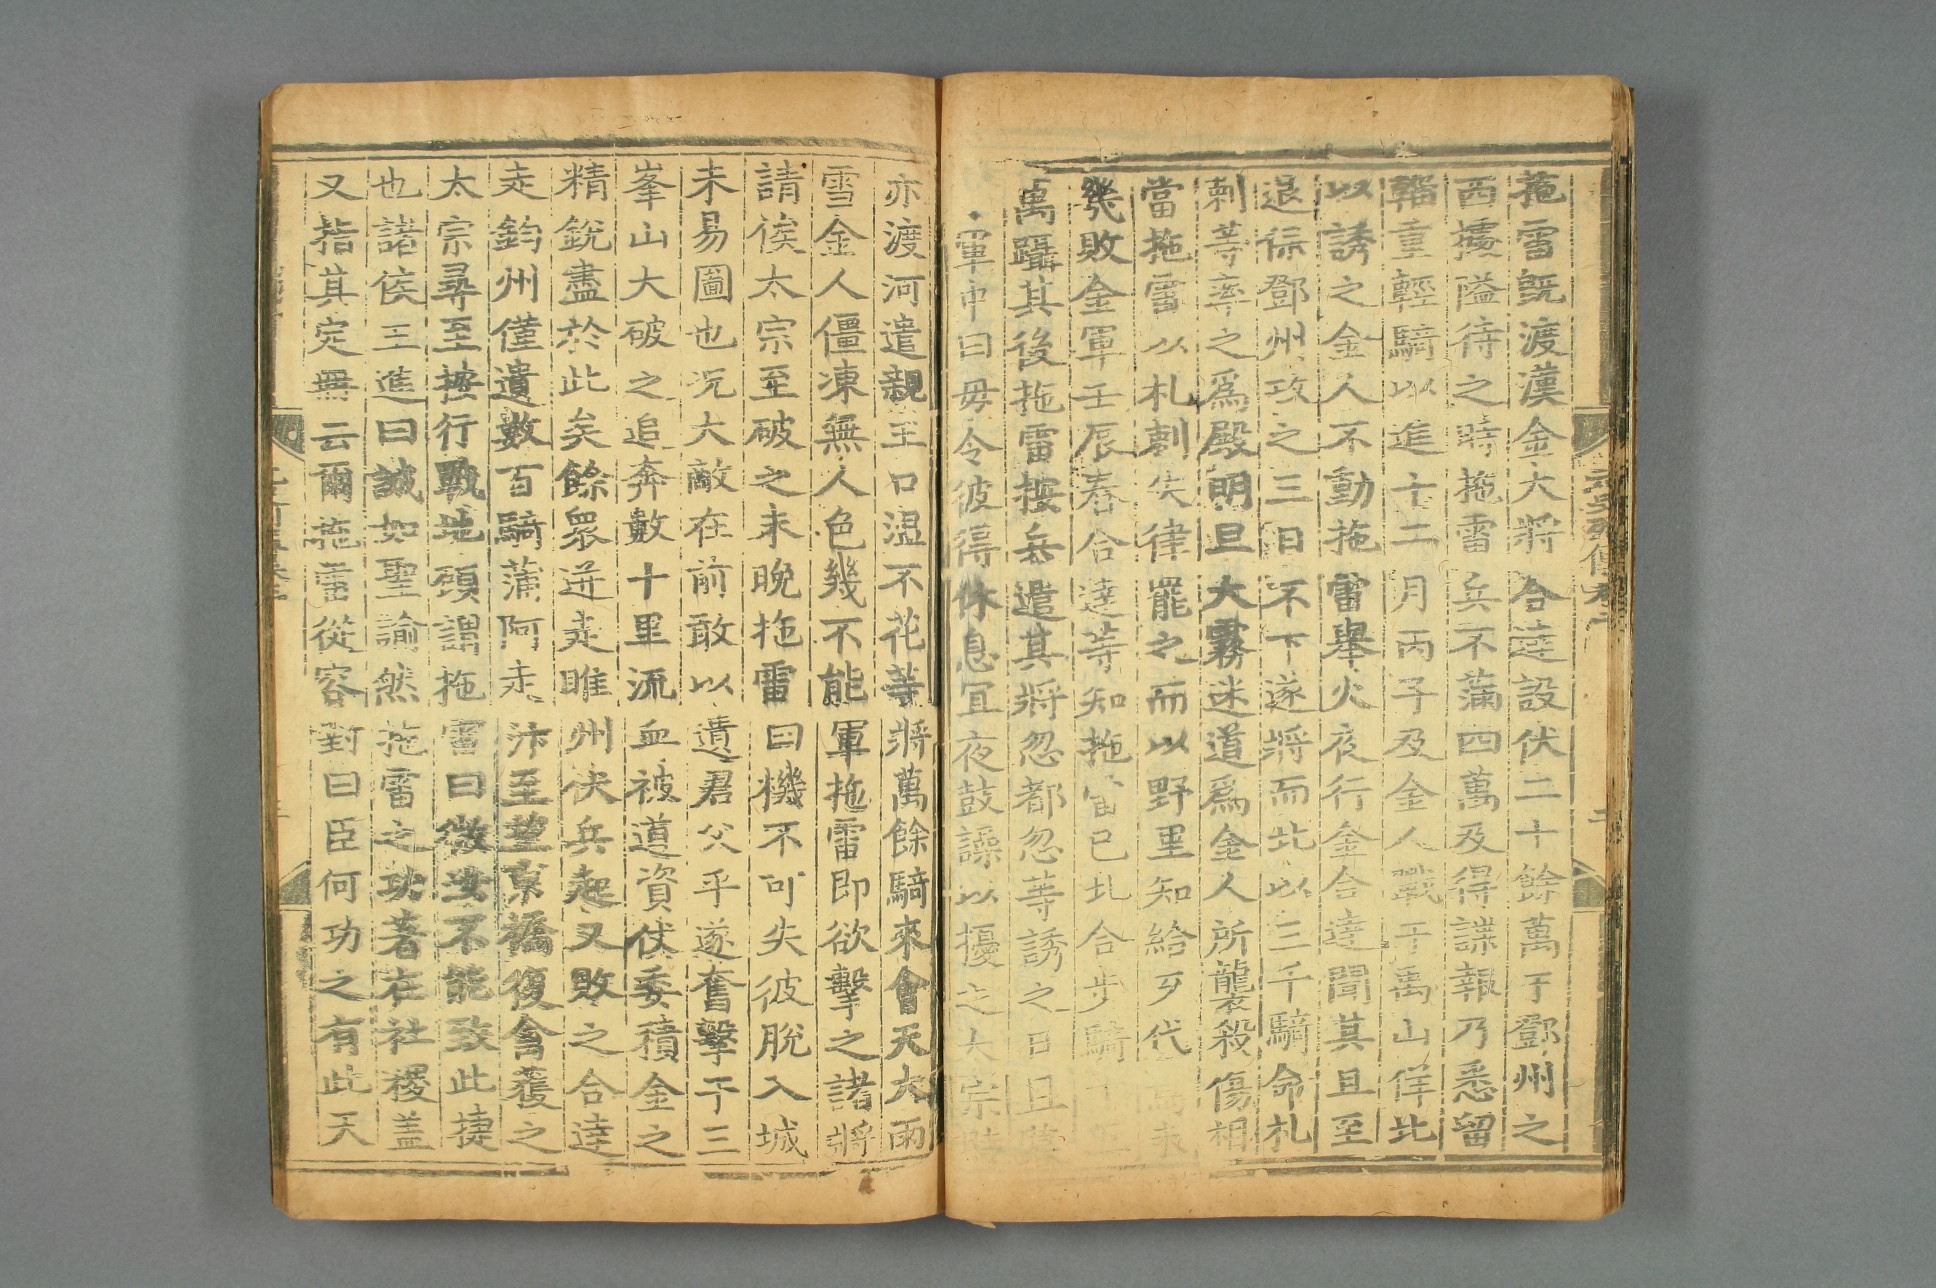 拖雷既渡漢金大將合達設伏二十餘萬于鄧州之
西據隘待之時拖雷兵不滿四萬及得諜報乃悉留
輜重輕騎以進十二月丙子及金人戰于禹山佯北
以誘之金人不動拖雷舉火夜行金合達聞其且至
退保鄧州攻之三日不下遂將而北以三千騎命札
剌等率之爲殿明旦大霧迷道爲金人所襲殺傷相
當拖雷以札剌失律罷之而以野里知給歹代
幾敗金軍壬辰春合達等知拖雷已北合步騎
萬躡其後拖雷按兵遣其將忽都忽等誘之日且
軍中曰毋令彼得休息宜夜鼓譟以擾之太宗時
亦渡河遣親王口温不花等將萬餘騎來會天大雨
雪金人僵凍無人色幾不能軍拖雷即欲擊之諸將
請俟太宗至破之未晚拖雷曰機不可失彼脫入城
未易圖也况大敵在前敢以遺君父乎遂奮擊于三
峯山大破之追奔數十里流血被道資仗委積金之
精銳盡於此矣餘衆迸走睢州伏兵起又敗之合達
走鈞州僅遺數百騎蒲阿走汴至望京橋復禽獲之
太宗尋至按行戰地顧謂拖雷曰微汝不能致此捷
也諸侯王進曰誠如聖諭然拖雷之功著在社稷盖
又指其定無云爾拖雷從容對曰臣何功之有此天